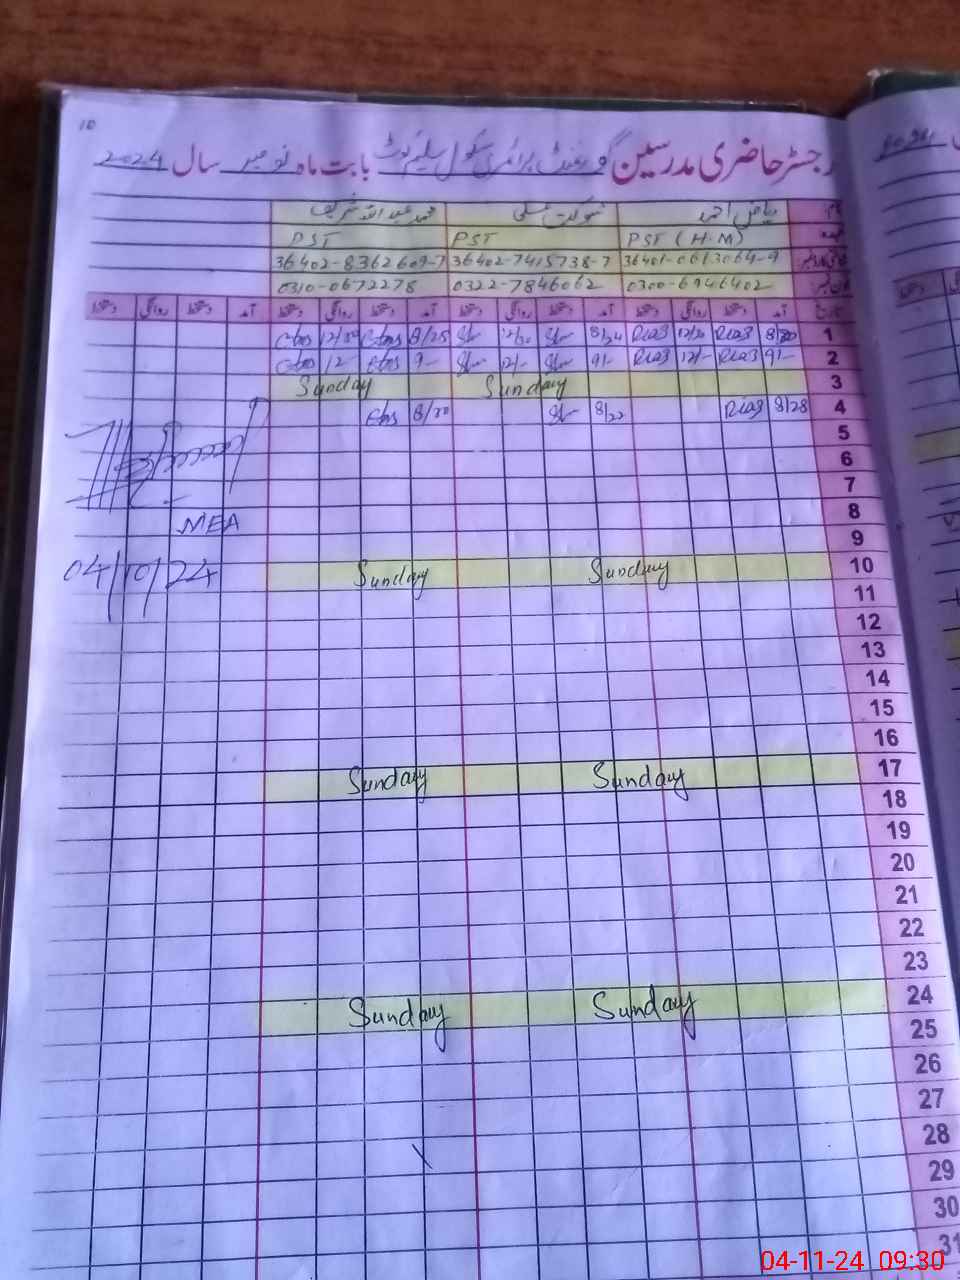 10
رجسٹر حاضری مدرسین گورنمنٹ پرائمری سکول سلیم کوٹ بابت ماہ نومبر سال 2024
نام ریاض احمد شوکت علی محمد عبداللہ شریف
عہدہ PST (H.M) PST PST
36401-0613064-9 36402-7415738-7 36402-8362609-7
0300-6946402 0322-7846062 0310-0672278
تاریخ آمد دستخط روانگی دستخط آمد دستخط روانگی دستخط آمد دستخط روانگی دستخط آمد دستخط روانگی دستخط
1 Riaz Riaz 8/24 8/25
2 9/- Riaz 12/- Riaz 9/- 12/- 9- 12-
3 Sunday Sunday
4 8/28 Riaz 8/22
5
6
7
8 MEA
9
10 Sunday Sunday 04/10/24
11
12
13
14
15
16
17 Sunday Sunday
18
19
20
21
22
23
24 Sunday Sunday
25
26
27
28
29
30
31
04-11-24 09:30